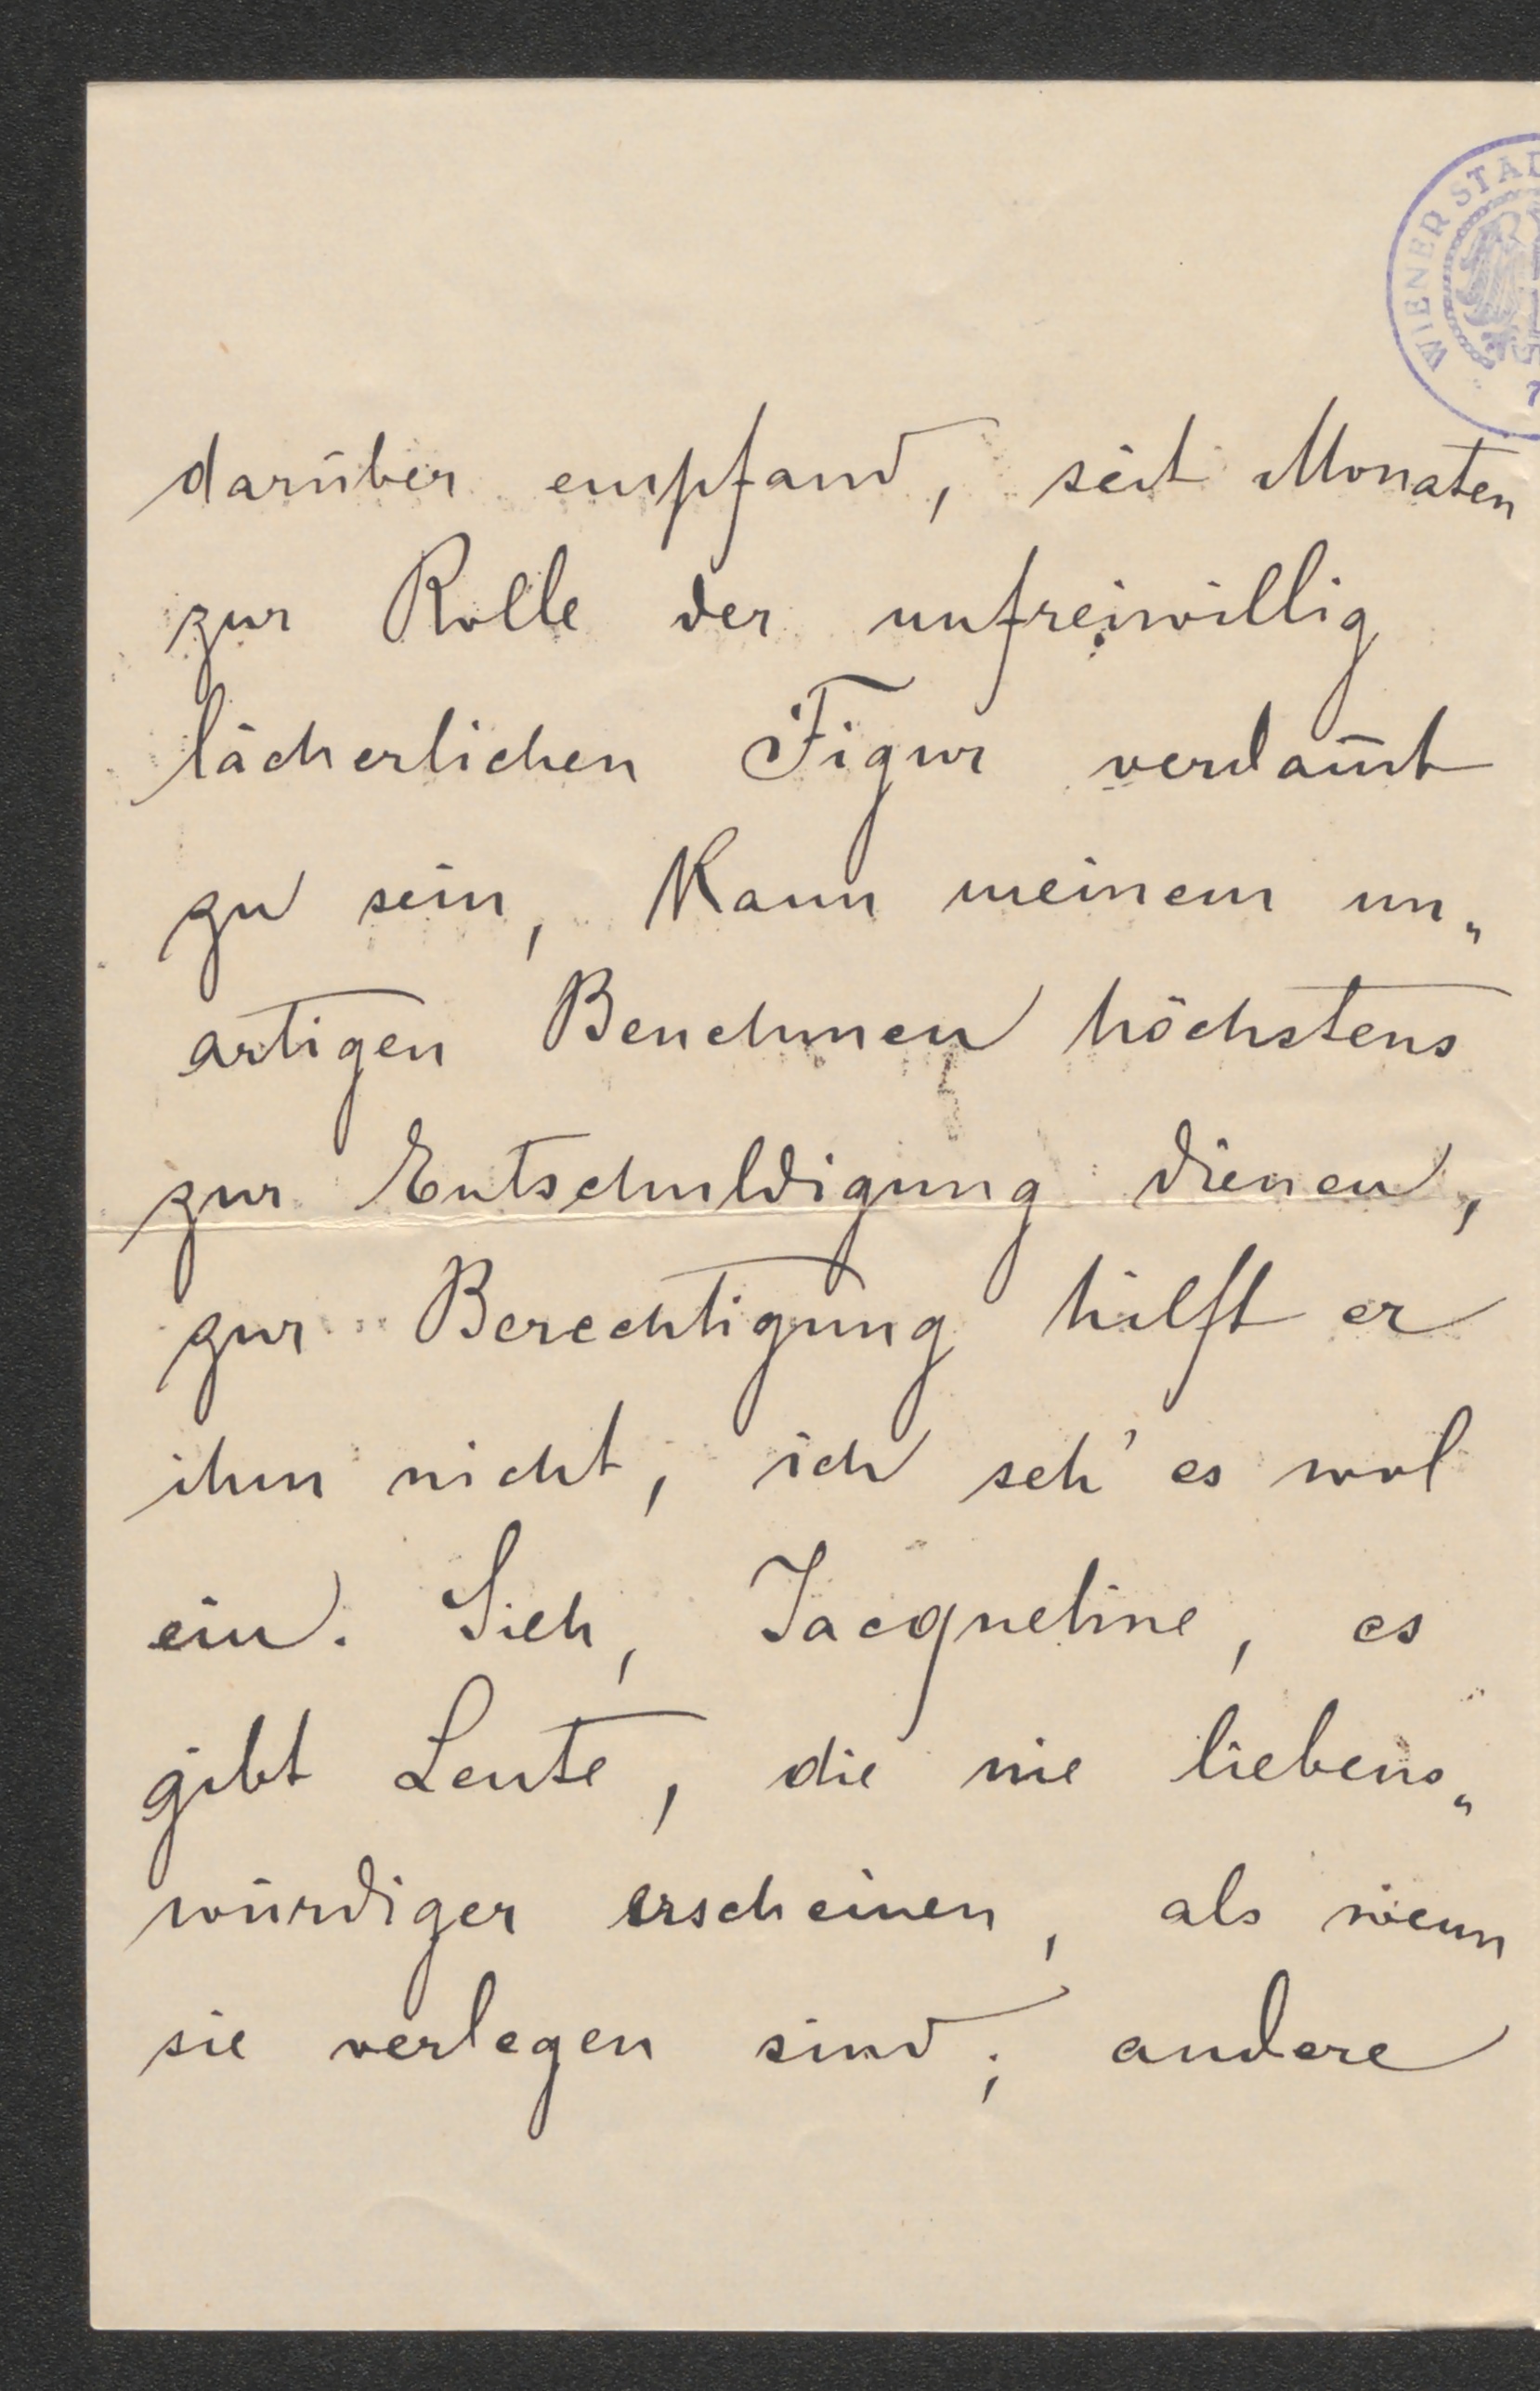 WIENER STAD
7
darüber empfand, seit Monaten
zur Rolle der unfreiwillig
lächerlichen Figur verdam̅t
zu sein, kann meinem un„
artigen Benehmen höchstens
zur Entschuldigung dienen,
zur Berechtigung hilft er
ihm nicht, ich seh' es wol
ein. Sieh, Jacqueline, es
gibt Leute, die nie liebens„
würdiger erscheinen, als wenn
sie verlegen sind; andere